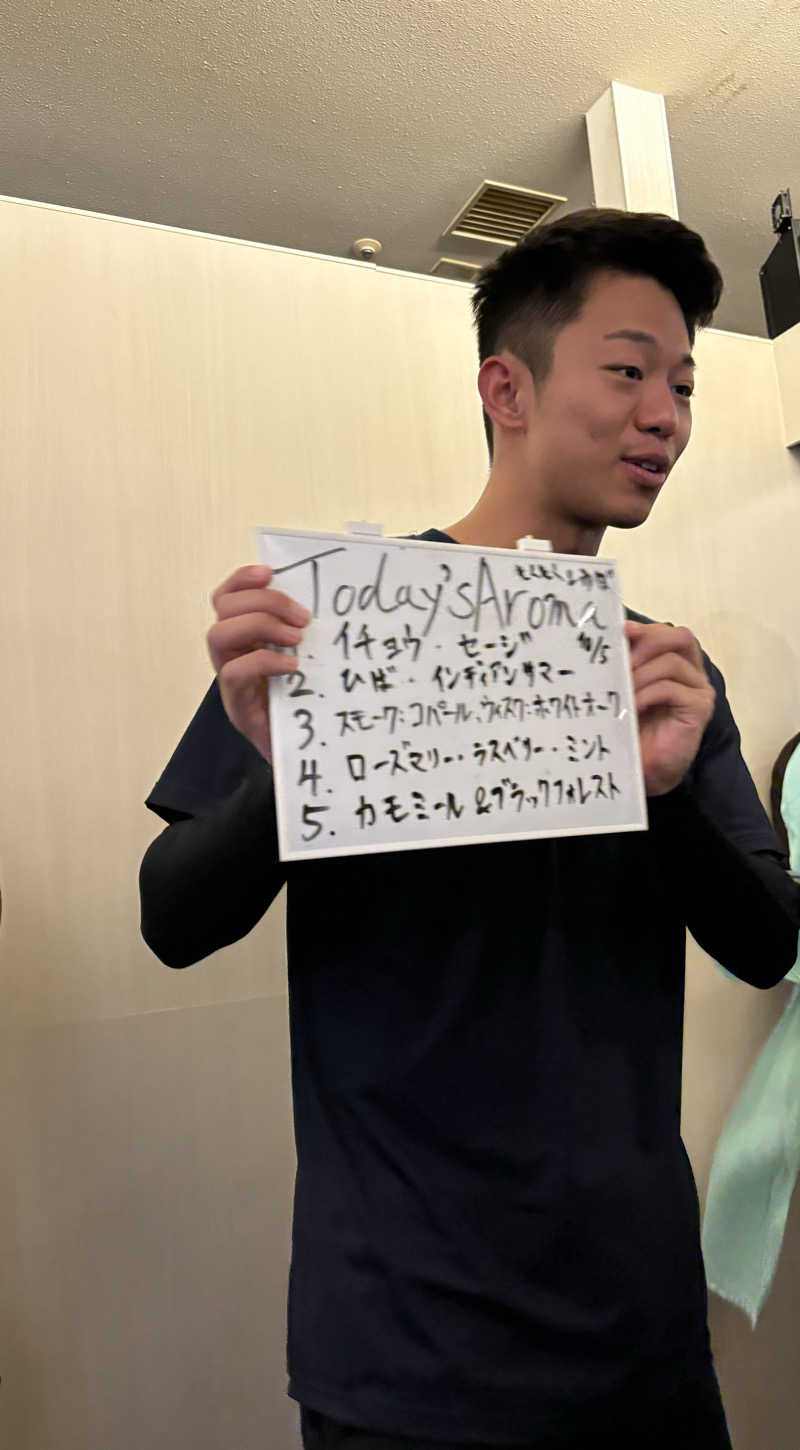 Today's Aroma
10/5
1. イチョウ・セージ
2. ひば・インディアンサマー
3. スモーク:コパール、ウィスク:ホワイトオーク
4. ローズマリー・ラズベリー・ミント
5. カモミール&ブラックフォレスト